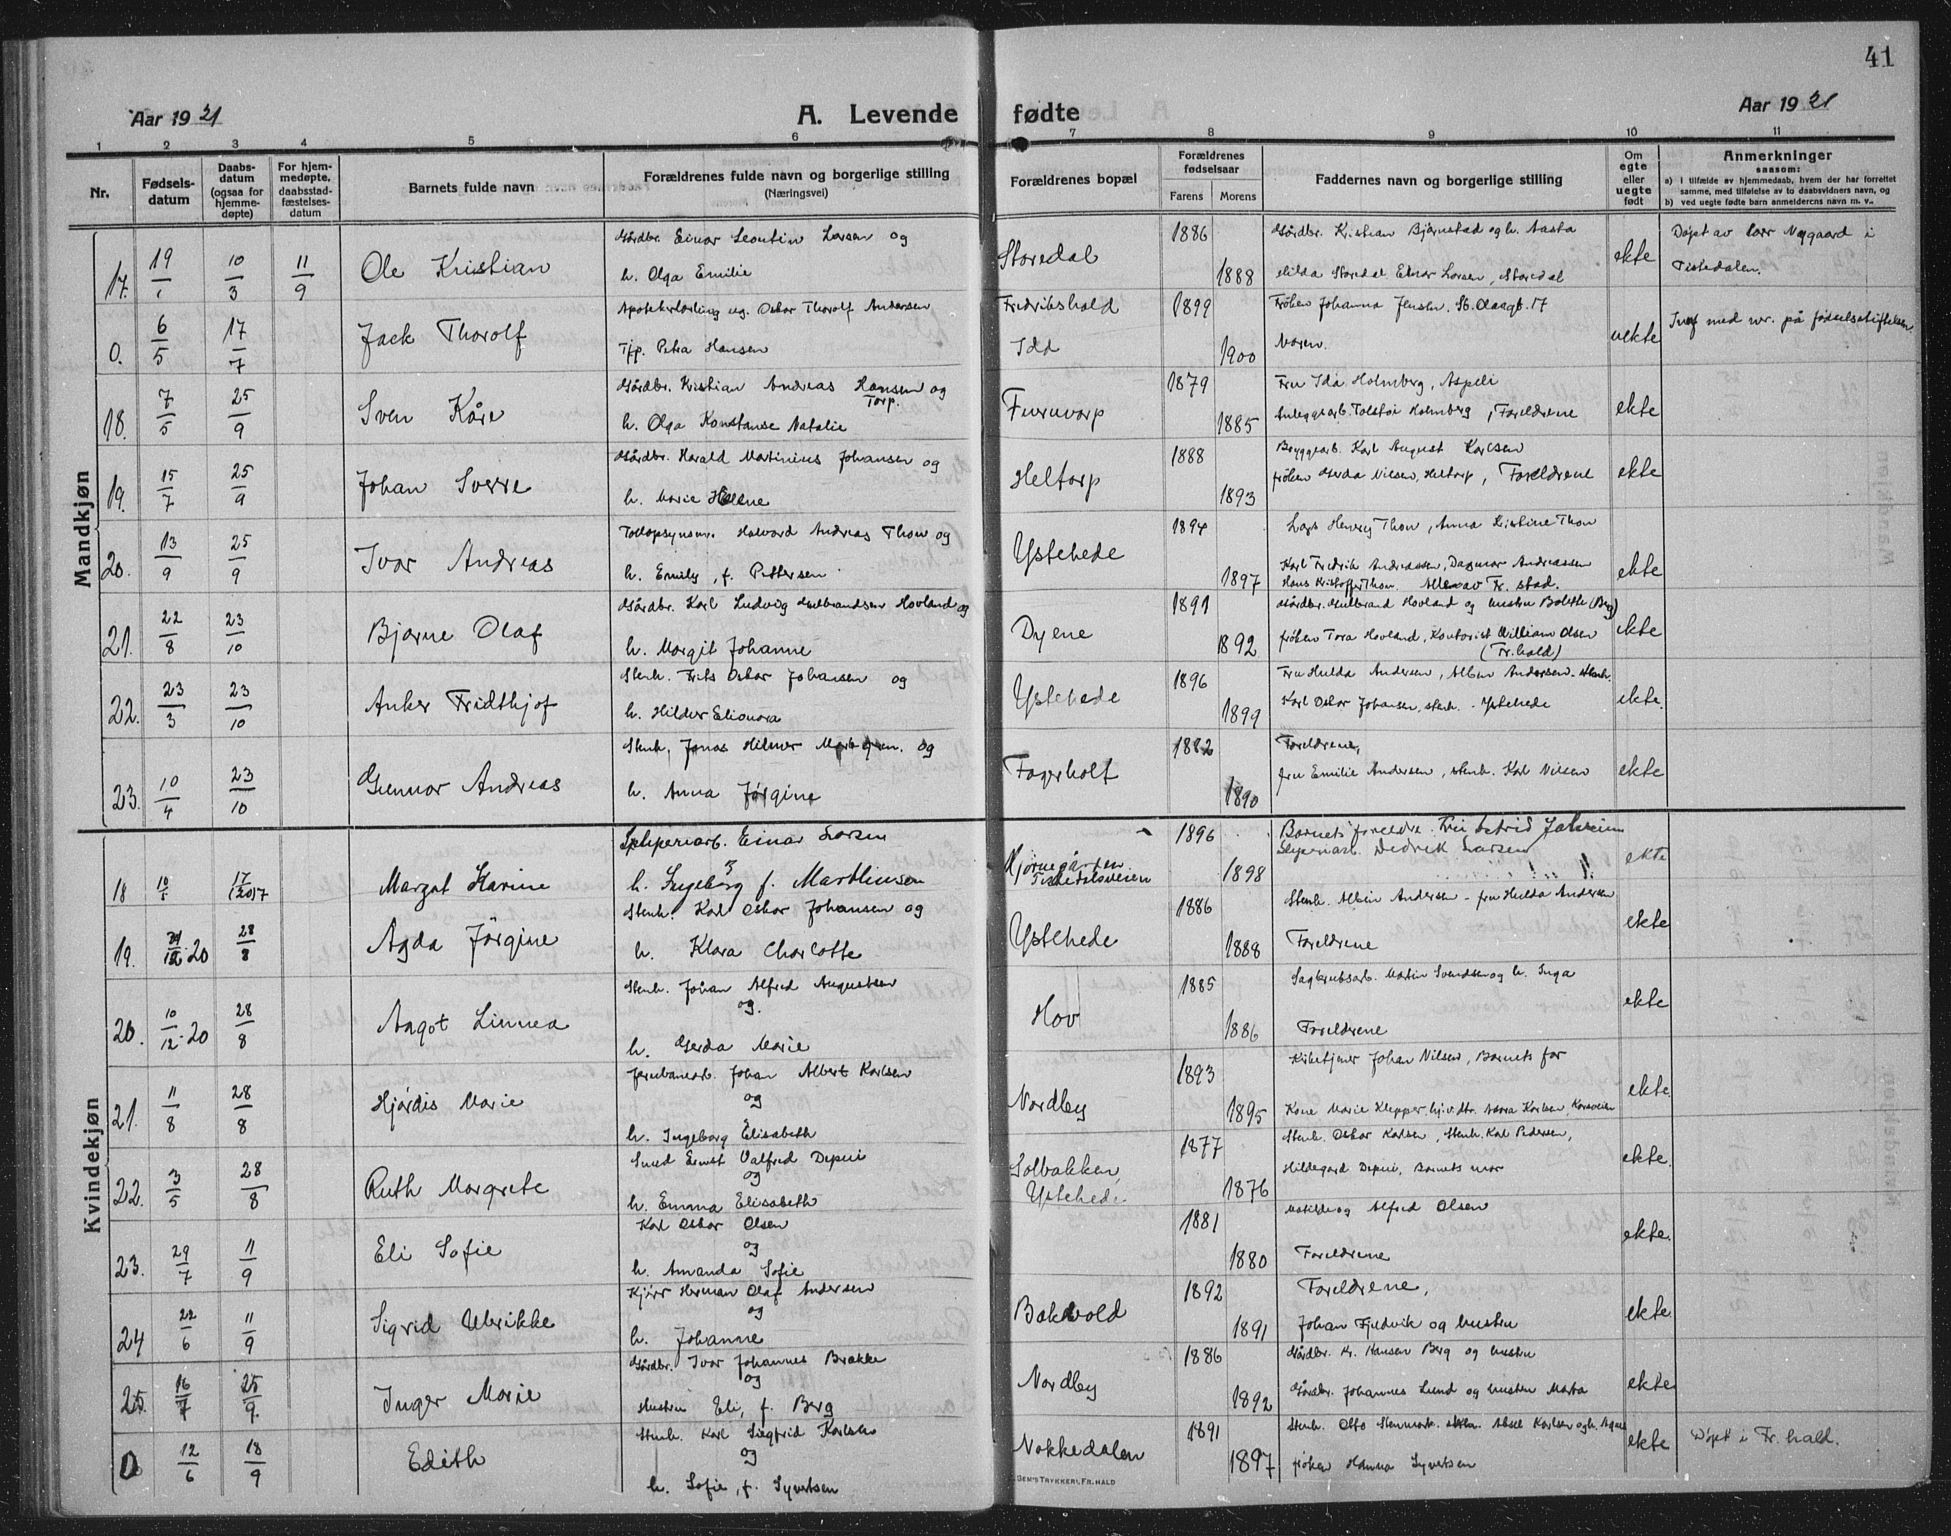 41
Aar 1921
A. Levende fødte
Aar 1921
1 2 3 4 5 6 7 8 9 10 11
Nr.
Fødsels-
datum
Daabs-
datum
(ogsaa for
hjemme-
døpte)
For hjem-
medøpte,
daabsstad-
fæstelses-
datum
Barnets fulde navn
Forældrenes fulde navn og borgerlige stilling
(Næringsvei)
Forældrenes bopæl
Forældrenes
fødselsaar
Farens Morens
Faddernes navn og borgerlige stilling
Om
egte
eller
uegte
født
Anmerkninger
saasom:
a) i tilfælde av hjemmedaab, hvem der har forrettet
samme, med tilføielse av to daabsvidners navn, og
b) ved uegte fødte barn anmelderens navn m. v..
Mandkjøn
17. 19/1 10/3 11/9 Ole Kristian
Gårdbr. Einar Leontin Larsen og
h. Olga Emilie
Storedal 1886 1888
Gårdbr. Kristian Bjørnstad og h. Aasta
Hilda Storedal Einar Larsen, Storedal
ekte
Døpt av Nygaard i
Tistedalen.
0. 6/5 17/7 Jack Thorolf
Apotekerlærling ug. Oskar Thorolf Andersen
Tjp. Petra Hansen
Fredrikshald
Idd 1899 1900
Frøken Johanna Jensen, St. Olasgt. 17
Moren.
uekte
med nr. på fødselsstiftelsen
18. 7/5 25/9 Sven Kåre
Gårdbr. Kristian Andreas Hansen og
Torp.
h. Olga Konstanse Natalie
Furuvarp 1879 1885
Fru Ida Holmberg, Aspeli
Anleggsarb. Tolstoi Holmberg, Foreldrene
ekte
19. 15/7 25/9 Johan Sverre
Gårdbr. Harald Martinius Johansen og
h. Marie Helene
Heltorp 1888 1893
Bryggearb. Karl August Karlsen
frøken Gerda Nilsen, Heltorp, Foreldrene
ekte
20. 13/9 25/9 Ivar Andreas
Tollopsynsm. Halvard Andreas Thon og
h. Emily, f. Pettersen
Ystehede 1894 1897
Henry Thon, Anna Kristine Thon
Karl Fredrik Andreassen, Dagmar Andreassen
Hans Kristoffer Thon. Alle av Fr. stad.
ekte
21. 22/8 23/10 Bjarne Olaf
Gårdbr. Karl Ludvig Gulbrandsen Hovland og
h. Margit Johanne
Dyene 1891 1892
Gårdbr. Gulbrand Hovland og hustru Bolette (Berg)
frøken Tora Hovland, Kontorist William Olsen
(Fr.hald)
ekte
22. 23/3 23/10 Anker Fridthjof
Stenh. Frits Oskar Johansen og
h. Hildur Elionora
Ystehede 1896 1899
Fru Hulda Andersen, Albin Andersen - stenh.
Karl Oskar Johansen, stenh. - Ystehede
ekte.
23. 10/4 23/10 Gunnar Andreas
Stenh. Jonas Hilmer og
h. Anna Jørgine
Fagerholt 1882 1890
Foreldrene,
fru Emilie Andersen, stenh. Karl Nilsen
ekte
Kvindekjøn
18 10/5 17/7 Margot Karine
Sliperiarb. Einar Larsen
h. Ingeborg f. Martinsen
Hjørnegården
Tistedalsveien 1896 1898
Barnets foreldre. Fru Astrid
Sliperiarb. Dedrik Larsen
ekte
19. 12.20 28/8 Agda Jørgine
Stenh. Karl Oskar Johansen og
h. Klara Charlotte
Ystehede 1886 1888
Stenh. Albin Andersen - fru Hulda Andersen
Foreldrene
ekte
20. 10/12.20 28/8 Aagot Linnea
Stenh. Johan Alfred Augustsen
og
h. Gerda Marie
Hov 1885 1886
Sagbruksarb. Martin Svendsen og h. Inga
Foreldrene
ekte
21. 11/8 28/8 Hjørdis Marie
Jernbanearb. Johan Albert Karlsen
og
h. Ingeborg Elisabeth
Nordby 1893 1895
Kirketjener Johan Nilsen, Barnets far
Kone Marie Klepper, hjv.dtr. Karlsen, Korsveien
ekte.
22. 3/5 28/8 Ruth Margrete
Smed Ernst Valfred Depui
og
h. Emma Elisabeth
Solbakken,
Ystehede 1877 1876
Stenh. Oskar Karlsen, Stenh. Karl Pedersen,
Hildegard Depui, Barnets mor
ekte.
23. 29/7 11/9 Eli Sofie
Karl Oskar Olsen
og
h. Amanda Sofie
1881 1880
Matilde og Alfred Olsen
Foreldrene
ekte.
24 22/6 11/9 Sigrid Ulrikke
Kjører Herman Olaf Andersen
og
h. Johanne
Bakvold 1892 1891
Foreldrene,
Johan Fjedvik og hustru
ekte.
25. 16/7 25/9 Inger Marie
Gårdbr. Ivar Johannes Brække
og
Hustru Eli, f. Berg
Nordby 1886 1892
Gårdbr. Kr. Hansen Berg og hustru
Gårdbr. Johannes Lund og hustru Marta
ekte
0 12/6 18/9 Edith
Stenh. Karl Sigfrid Karlsen
og
h. Sofie, f. Syvertsen
Nokkedalen 1891 1897
Stenh. Otto Stenmark. Aksel Karlsen og h. Agnes
frøken Hanna Syvertsen
ekte
Døpt i Fr.hald.
SEM'S TRYKKERI, FR.HALD